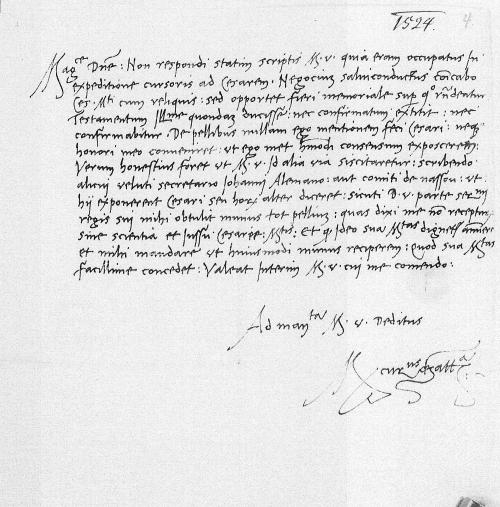 1524.
4
Mag^ce Dne: Non respondi statim scriptis M. v. quia eram occupatus in
expeditione cursoris ad Cesarem. Negocium salviconductus concabo
Ces. M^ti cum reliquis: sed opportet fieri memoriale sup quo
Testamentum Ill^me quondam ducissae: nec confirmatum extitit: nec
confirmabitur. De pellibus nullam ego mentionem feci Cesari: neque
honori meo conveniret: ut ego met hmodi consensum exposcerem.
Verum honestius foret ut M. v. Id alia via suscitaretur: scribendo
alicui veluti secretario Iohanni Alemano: aut comiti de nassou: ut
hij exponerent Cesari seu hor alter diceret: sicuti D. v. parte ser^mi
regis sui mihi obtulit munus tot pellium: quas dixi me non recepturum
sine scientia et Iussu Cesaree M^tis. Et q Ideo sua M^tas dignetur annuere
et mihi mandare ut huiusmodi munus reciperem: quod sua M^tas
facillime concedet: Valeat Interim M. v. cui me comendo:
Ad man^ta M. v. Deditus
M^curinus Gatt^a